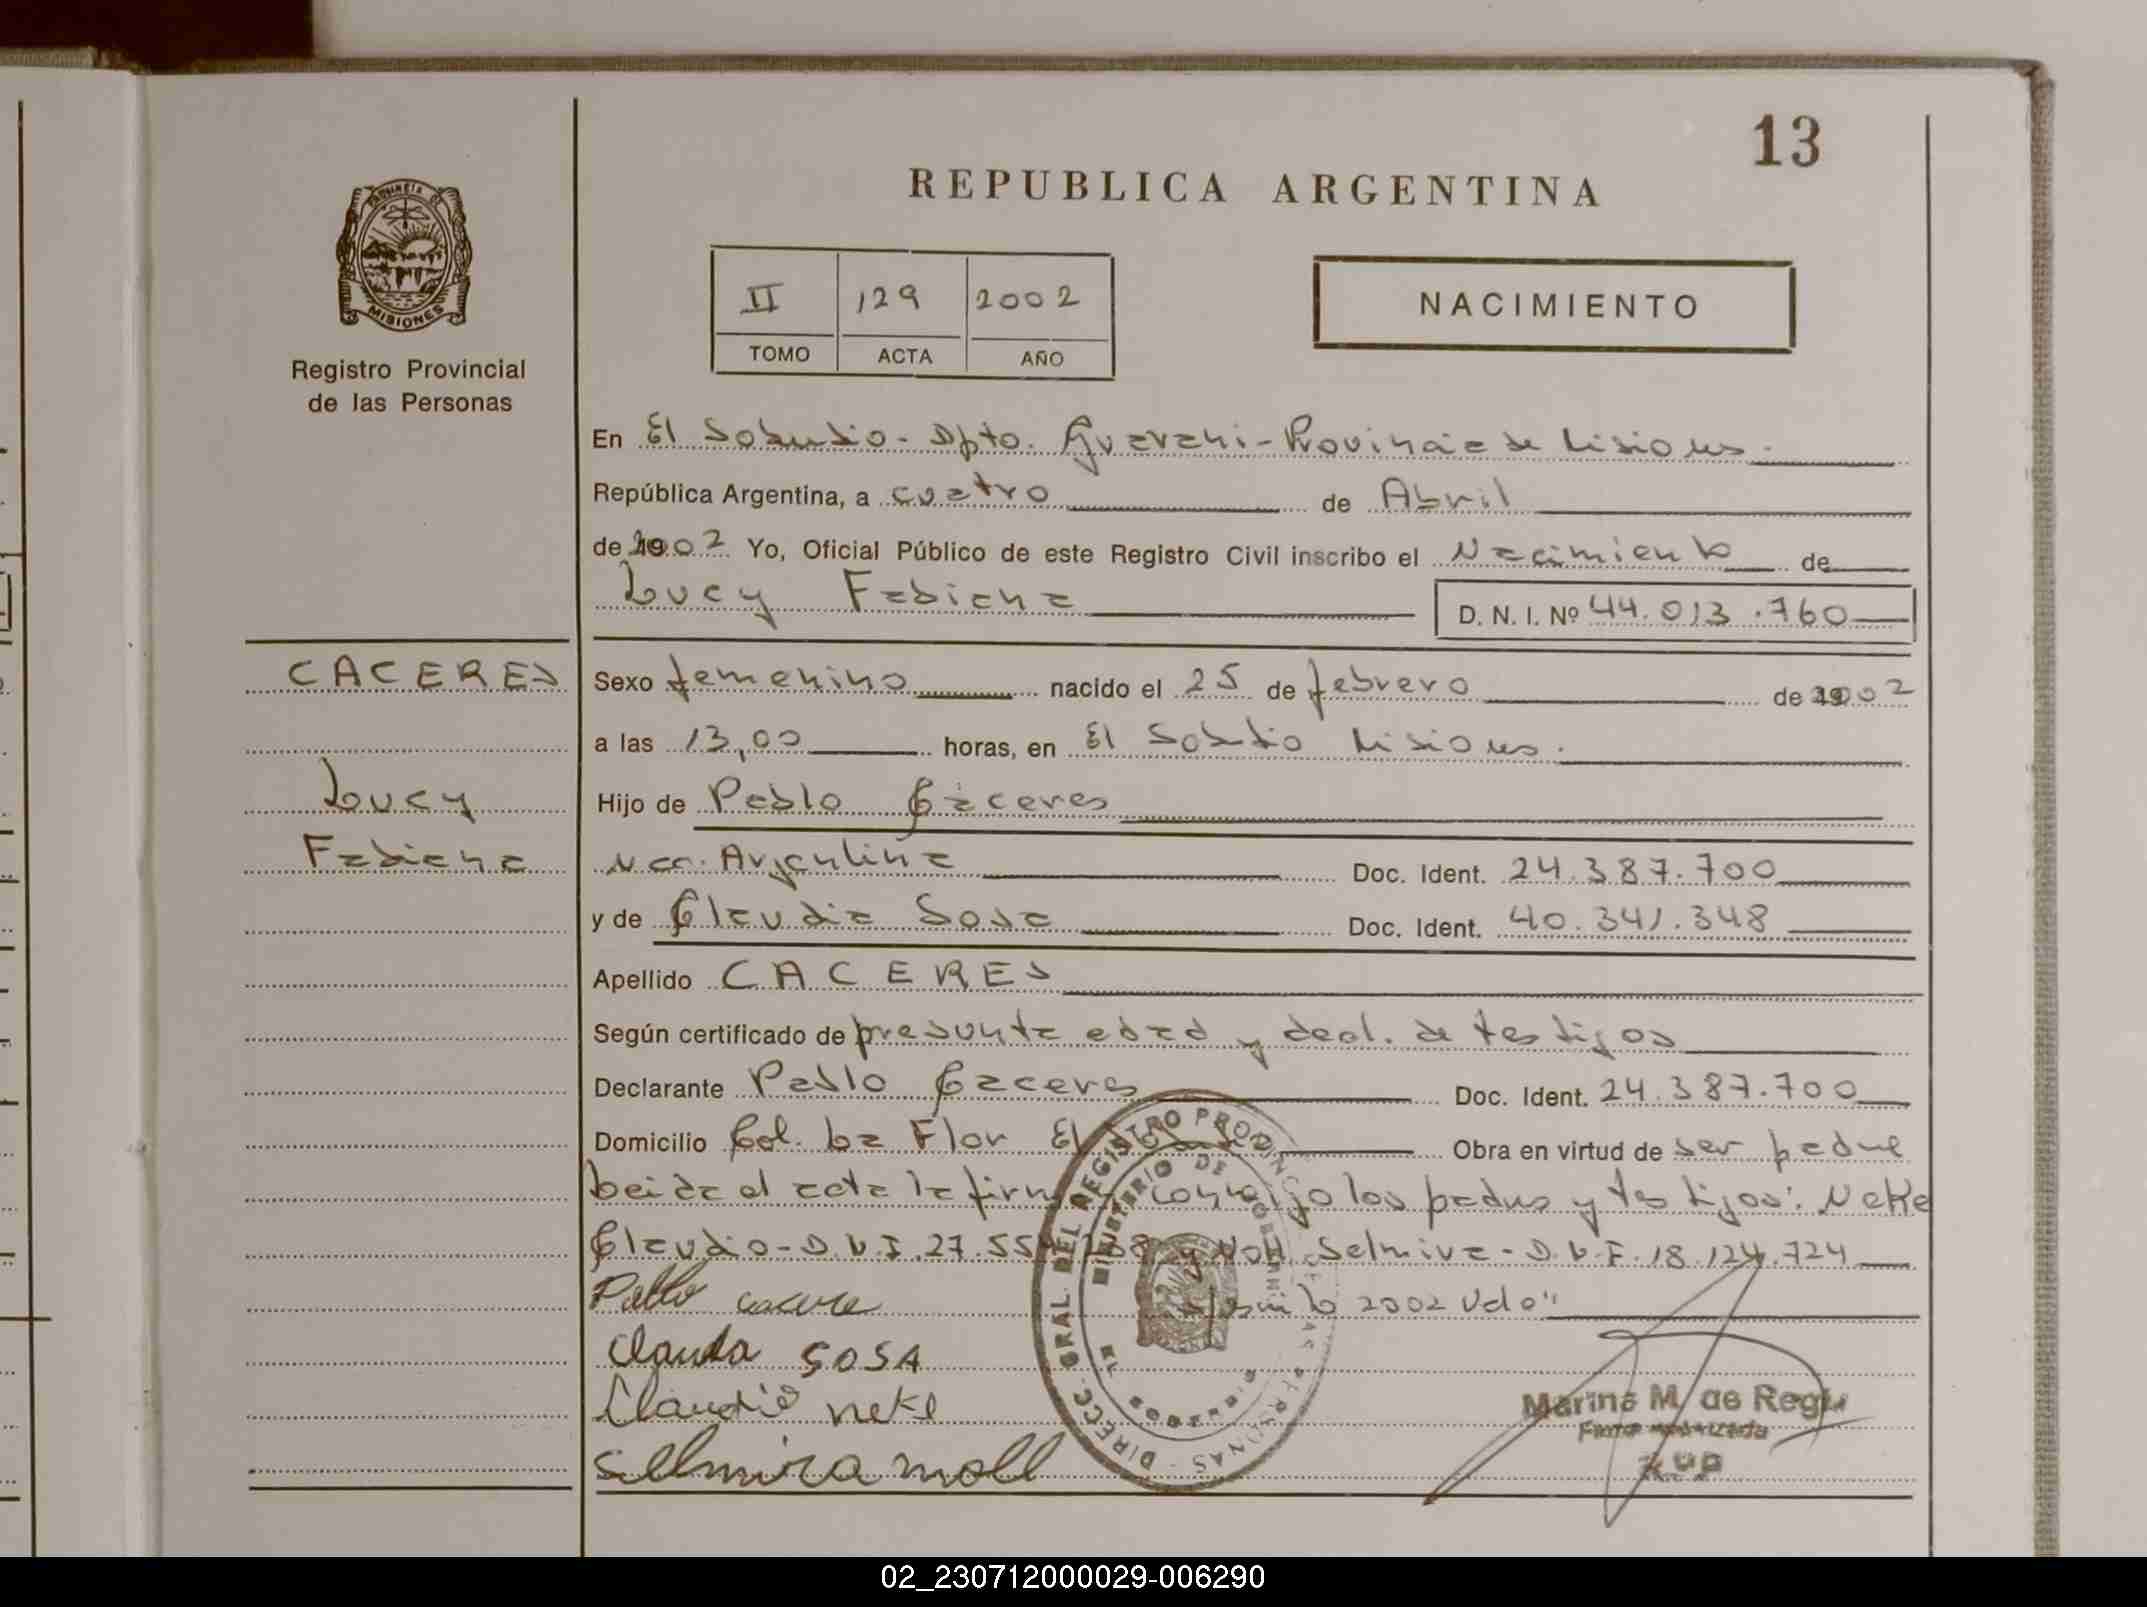 13
REPUBLICA ARGENTINA
MISIONES
Registro Provincial
de las Personas
II 129 2002
TOMO ACTA AÑO
NACIMIENTO
En El Soberbio - Dpto. Guarani - Provincia de Misiones.
República Argentina, a cuatro de Abril
de 2002 Yo, Oficial Público de este Registro Civil inscribo el Nacimiento de
Lucy Fabiana D. N. I. Nº 44.013.760
CACERES
Lucy
Fabiana
Sexo femenino nacido el 25 de febrero de 2002
a las 13,00 horas, en El Soberbio Misiones.
Hijo de Pablo Cáceres
Nac. Argentina Doc. Ident. 24.387.700
y de Claudia Sosa Doc. Ident. 40.341.348
Apellido CACERES
Según certificado de presunta edad y decl. de testigos
Declarante Pablo Caceres Doc. Ident. 24.387.700
Domicilio Col. La Flor El Obra en virtud de ser padre
Leida el acta la firman conmigo los padres y testigos: Neke
Claudio - D.N.I. 27.55 y Moll Selmira - D.N.I. 18.124.724
Pablo cacere 2002 Vale"
Claudia SOSA
Claudio neke
Selmira moll
DIRECC. GRAL. DEL REGISTRO PROVINC. DE LAS PERSONAS
MINISTERIO DE GOBIERNO
MISIONES
Marina M. de Regu
Firma autorizada
R.P.P
02_230712000029-006290